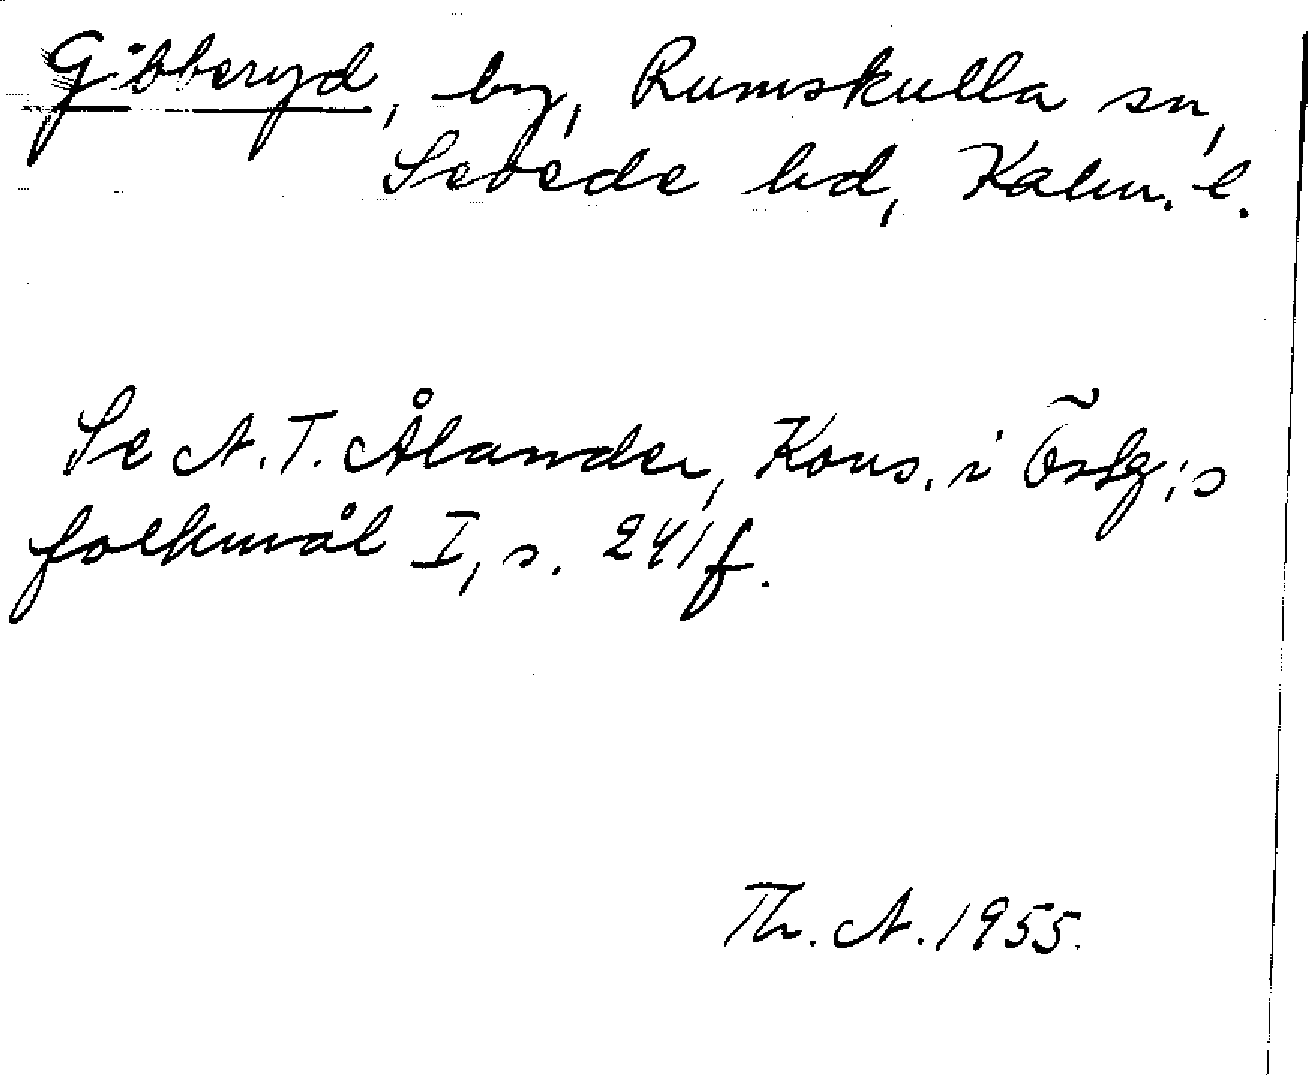 Gibberyd, by, Rumskulla sn,
Sevede hd, Kalm. l.
Se A. T. Ålander, Kons. i Östg:s
folkmål I, s. 241 f.
Th. A. 1955.